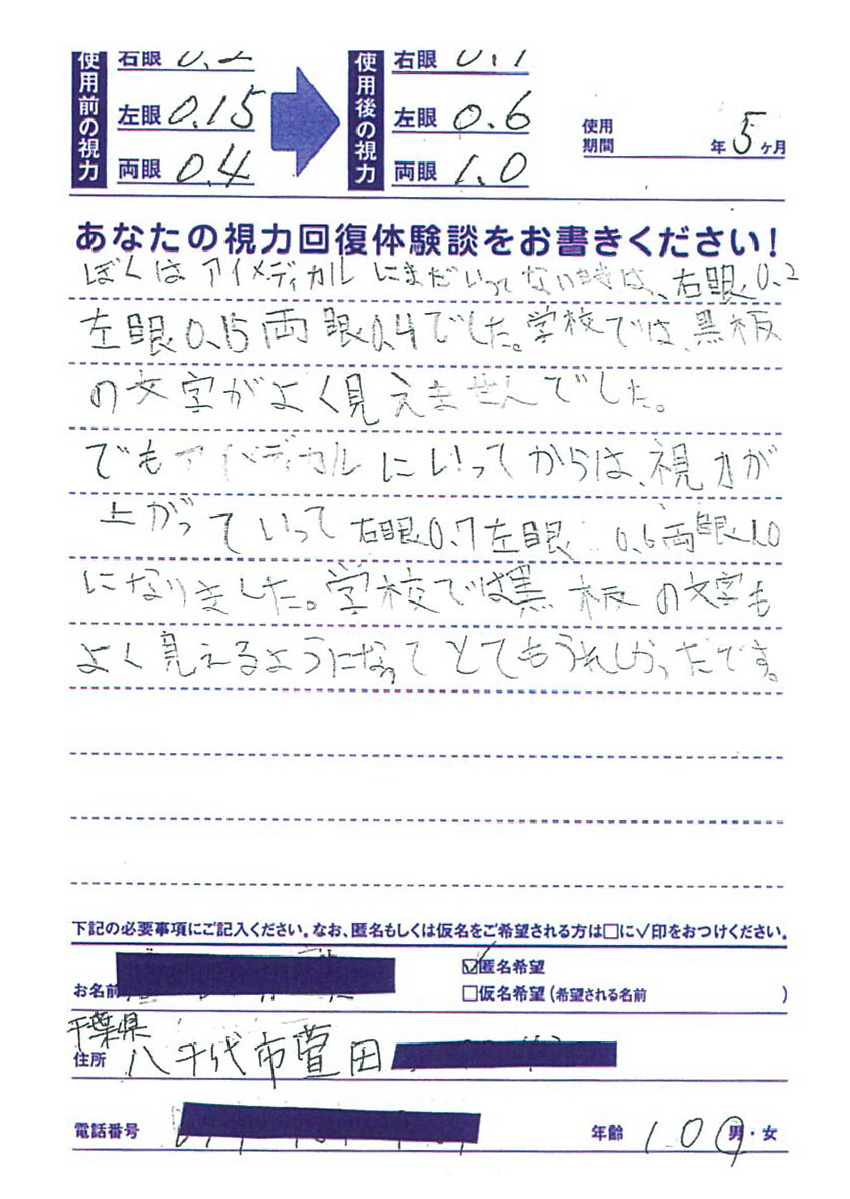 使用前の視力
右眼 0.2
左眼 0.15
両眼 0.4
使用後の視力
右眼
左眼 0.6
両眼 1.0
使用期間 年 5ヶ月
あなたの視力回復体験談をお書きください!
ぼくはアイメディカルにまだいってない時は、右眼0.2
左眼0.15両眼0.4でした。学校では、黒板
の文字がよく見えませんでした。
でもアイメディカルにいってからは、視力が
上がっていって右眼0.7左眼0.6両眼1.0
になりました。学校では黒板の文字も
よく見えるようになってとてもうれしかったです。
下記の必要事項にご記入ください。なお、匿名もしくは仮名をご希望される方は□に✓印をおつけください。
お名前
☑匿名希望
□仮名希望(希望される名前 )
住所 千葉県
八千代市萱田
電話番号
年齢 10 男・女